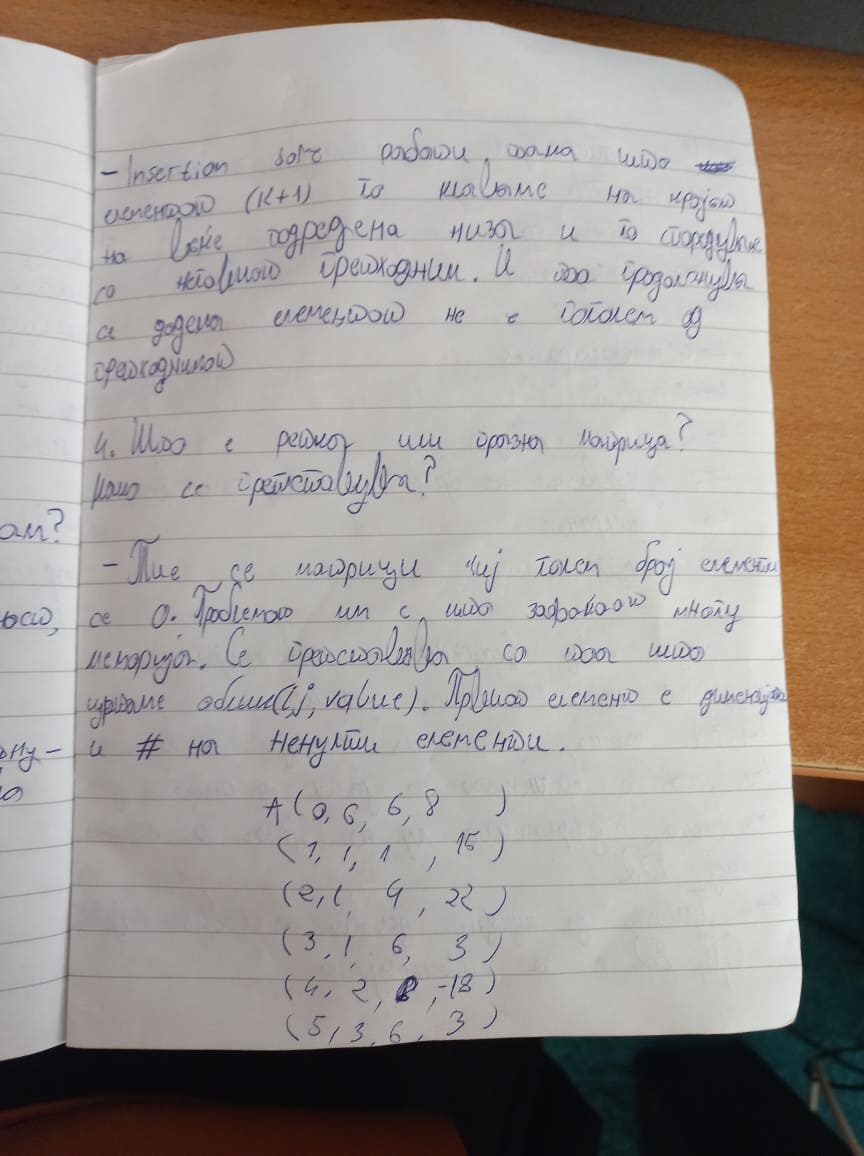 - Insertion sort работи така што
елементот (K+1) го ставаме на крајот
на веќе подредена низа и го споредуваме
со неговиот претходник. И тоа продолжува
се додека елементот не е поголем од
претходникот
4. Што е ретка или празна матрица?
Како се претставува?
- Тие се матрици чиј голем број елементи
се 0. Проблемот им е што зафаќаат многу
меморија. Се претставува со тоа што
облик (i,j, value). Првиот елемент е димензија
и # на ненулти елементи.
A(0, 6, 6, 8 )
(1, 1, 1 , 15 )
(2, 1, 4 , 22 )
(3, 1, 6, 3 )
(4, 2, , -18 )
(5, 3, 6, 3 )
ам?